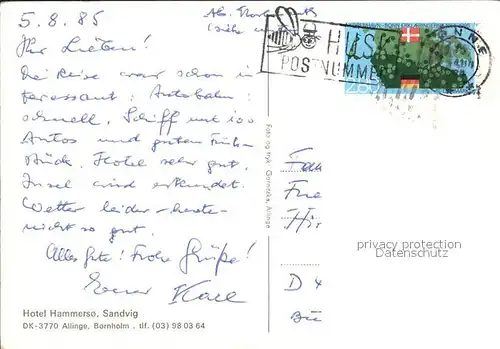 5.8.85
Ihr Lieben!
Die Reise war schon in
teressant: Autobahn:
schnell, Schiff mit 100
Autos und gutem Früh-
stück. Hotel sehr gut.
Insel wird erkundet.
Wetter leider - heute -
nicht so gut.
Alles Gute! Frohe Grüße!
Euer Karl
Hotel Hammersø, Sandvig
DK-3770 Allinge, Bornholm . tlf. (03) 98 03 64
Foto og tryk Gornitzka, Allinge
HUSK
POSTNUMME
RØNNE
Fam
Hir
D
privacy protection
Datenschutz